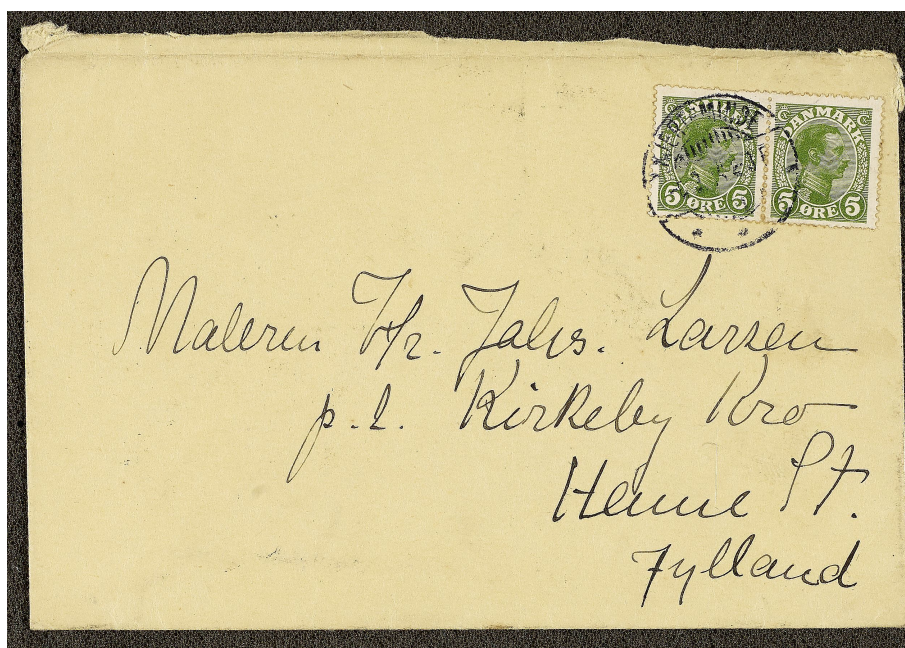 KJERTEMINDE
DANMARK
5 ØRE 5
DANMARK
5 ØRE 5
Maleren Hr. Johs. Larsen
p.t. Kirkeby Kro
Henne St.
Jylland